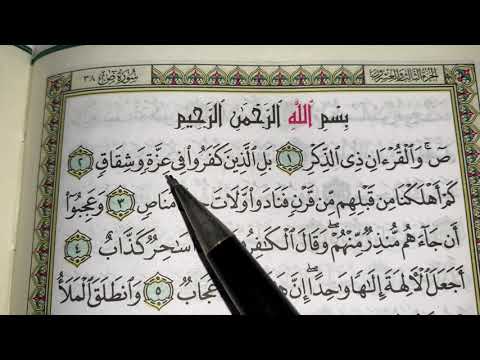 الجزء الثالث والعشرون
سورة ص ٣٨
بِسْمِ اللَّهِ الرَّحْمَٰنِ الرَّحِيمِ
صٓ ۚ وَالْقُرْءَانِ ذِي الذِّكْرِ ١ بَلِ الَّذِينَ كَفَرُوا فِي عِزَّةٍ وَشِقَاقٍ ٢
كَمْ أَهْلَكْنَا مِن قَبْلِهِم مِّن قَرْنٍ فَنَادَوا وَّلَاتَ مَنَاصٍ ٣ وَعَجِبُوٓا
أَن جَآءَهُم مُّنذِرٌ مِّنْهُمْ ۖ وَقَالَ الْكَٰفِرُونَ سَٰحِرٌ كَذَّابٌ ٤
أَجَعَلَ الْءَالِهَةَ إِلَٰهًا وَٰحِدًا ۖ إِنَّ هَٰذَا عُجَابٌ ٥ وَانطَلَقَ الْمَلَأُ